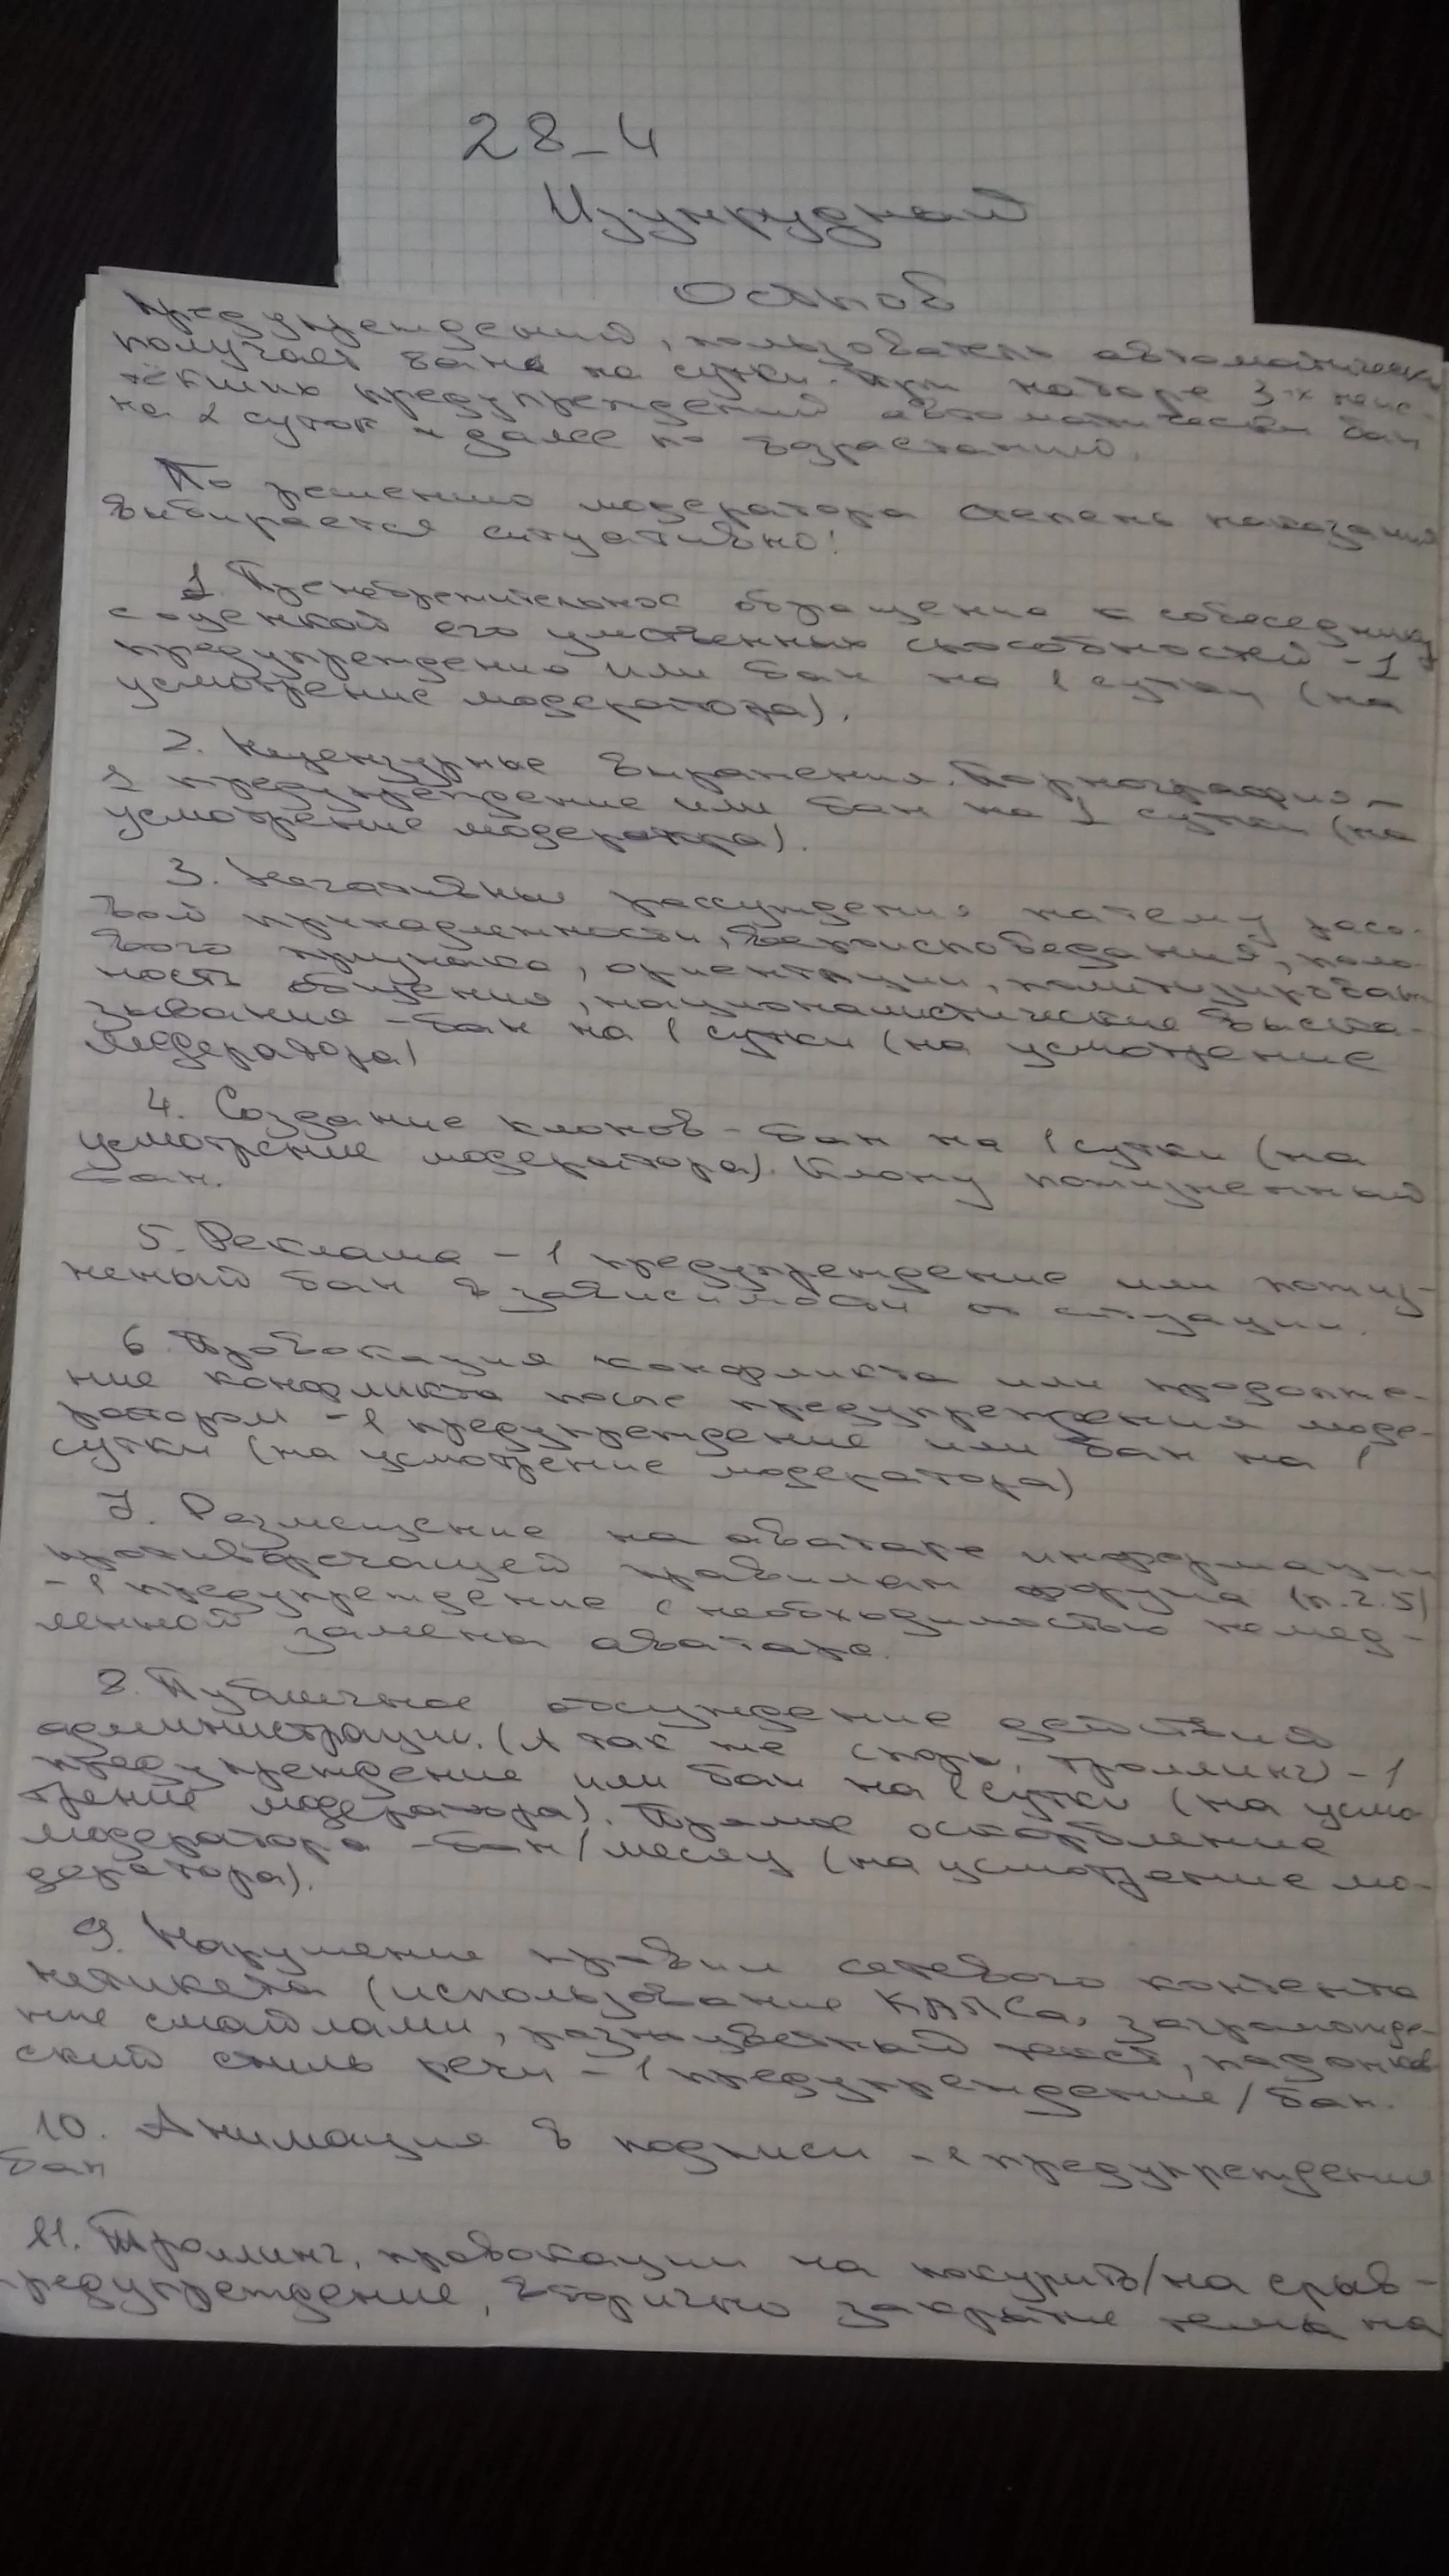 28_4
Изумрудный
Остров
предупреждений, пользователь автоматически
получает бан на сутки. При наборе 3-х неис-
тёкших предупреждений автоматически бан
на 2 суток и далее по возрастанию.
По решению модератора степень наказания
выбирается ситуативно!
1. Пренебрежительное обращение к собеседнику
с оценкой его умственных способностей - 1
предупреждение или бан на 1 сутки (на
усмотрение модератора).
2. Нецензурные выражения. Порнография -
1 предупреждение или бан на 1 сутки (на
усмотрение модератора).
3. Негативные рассуждения на тему расо-
вой принадлежности, вероисповедания, поло-
вого признака, ориентации, политизирован
ность общения, националистические выска-
зывания - бан на 1 сутки (на усмотрение
модератора)
4. Создание клонов - бан на 1 сутки (на
усмотрение модератора). Клону пожизненный
бан.
5. Реклама - 1 предупреждение или пожиз-
неный бан в зависимости от ситуации.
6. Провокация конфликта или продолже-
ние конфликта после предупреждения моде-
ратором - 1 предупреждение или бан на 1
сутки (на усмотрение модератора)
7. Размещение на аватаре информации
противоречащей правилам форума (п.2.5)
- 1 предупреждение с необходимостью немед-
ленной замены аватара.
8. Публичное обсуждение действий
администрации. (А так же споры, троллинг) - 1
предупреждение или бан на 1 сутки (на усмо
трение модератора). Прямое оскорбление
модератора - бан/месяц (на усмотрение мо-
дератора).
9. Нарушение правил сетевого контента
нетикета (использование КАПСа, загроможде-
ние смайлами, разноцветный текст, падонков
ский стиль речи - 1 предупреждение/бан.
10. Анимация в подписи - 1 предупреждение
бан
11. Троллинг, провокации на покурить/на срыв -
предупреждение, вторично закрытие темы на